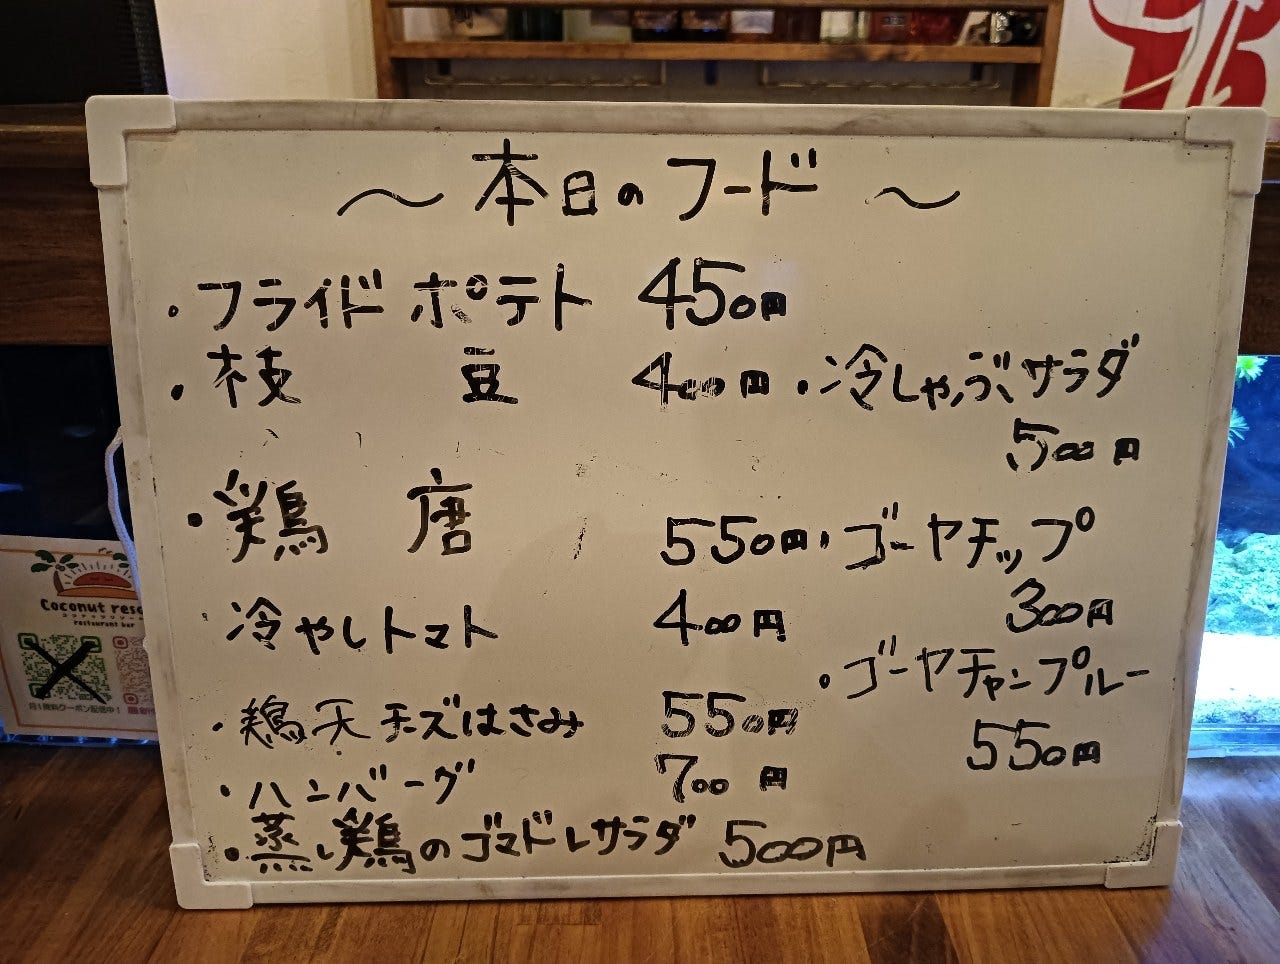 ～本日のフード～
・フライドポテト 450円
・枝豆 400円
・冷しゃぶサラダ
500円
・鶏唐 550円
・ゴーヤチップ
300円
・冷やしトマト 400円
・ゴーヤチャンプルー
550円
・鶏天チーズはさみ 550円
・ハンバーグ 700円
・蒸し鶏のゴマドレサラダ 500円
Coconut reso
restaurant bar
月1無料クーポン配信中！